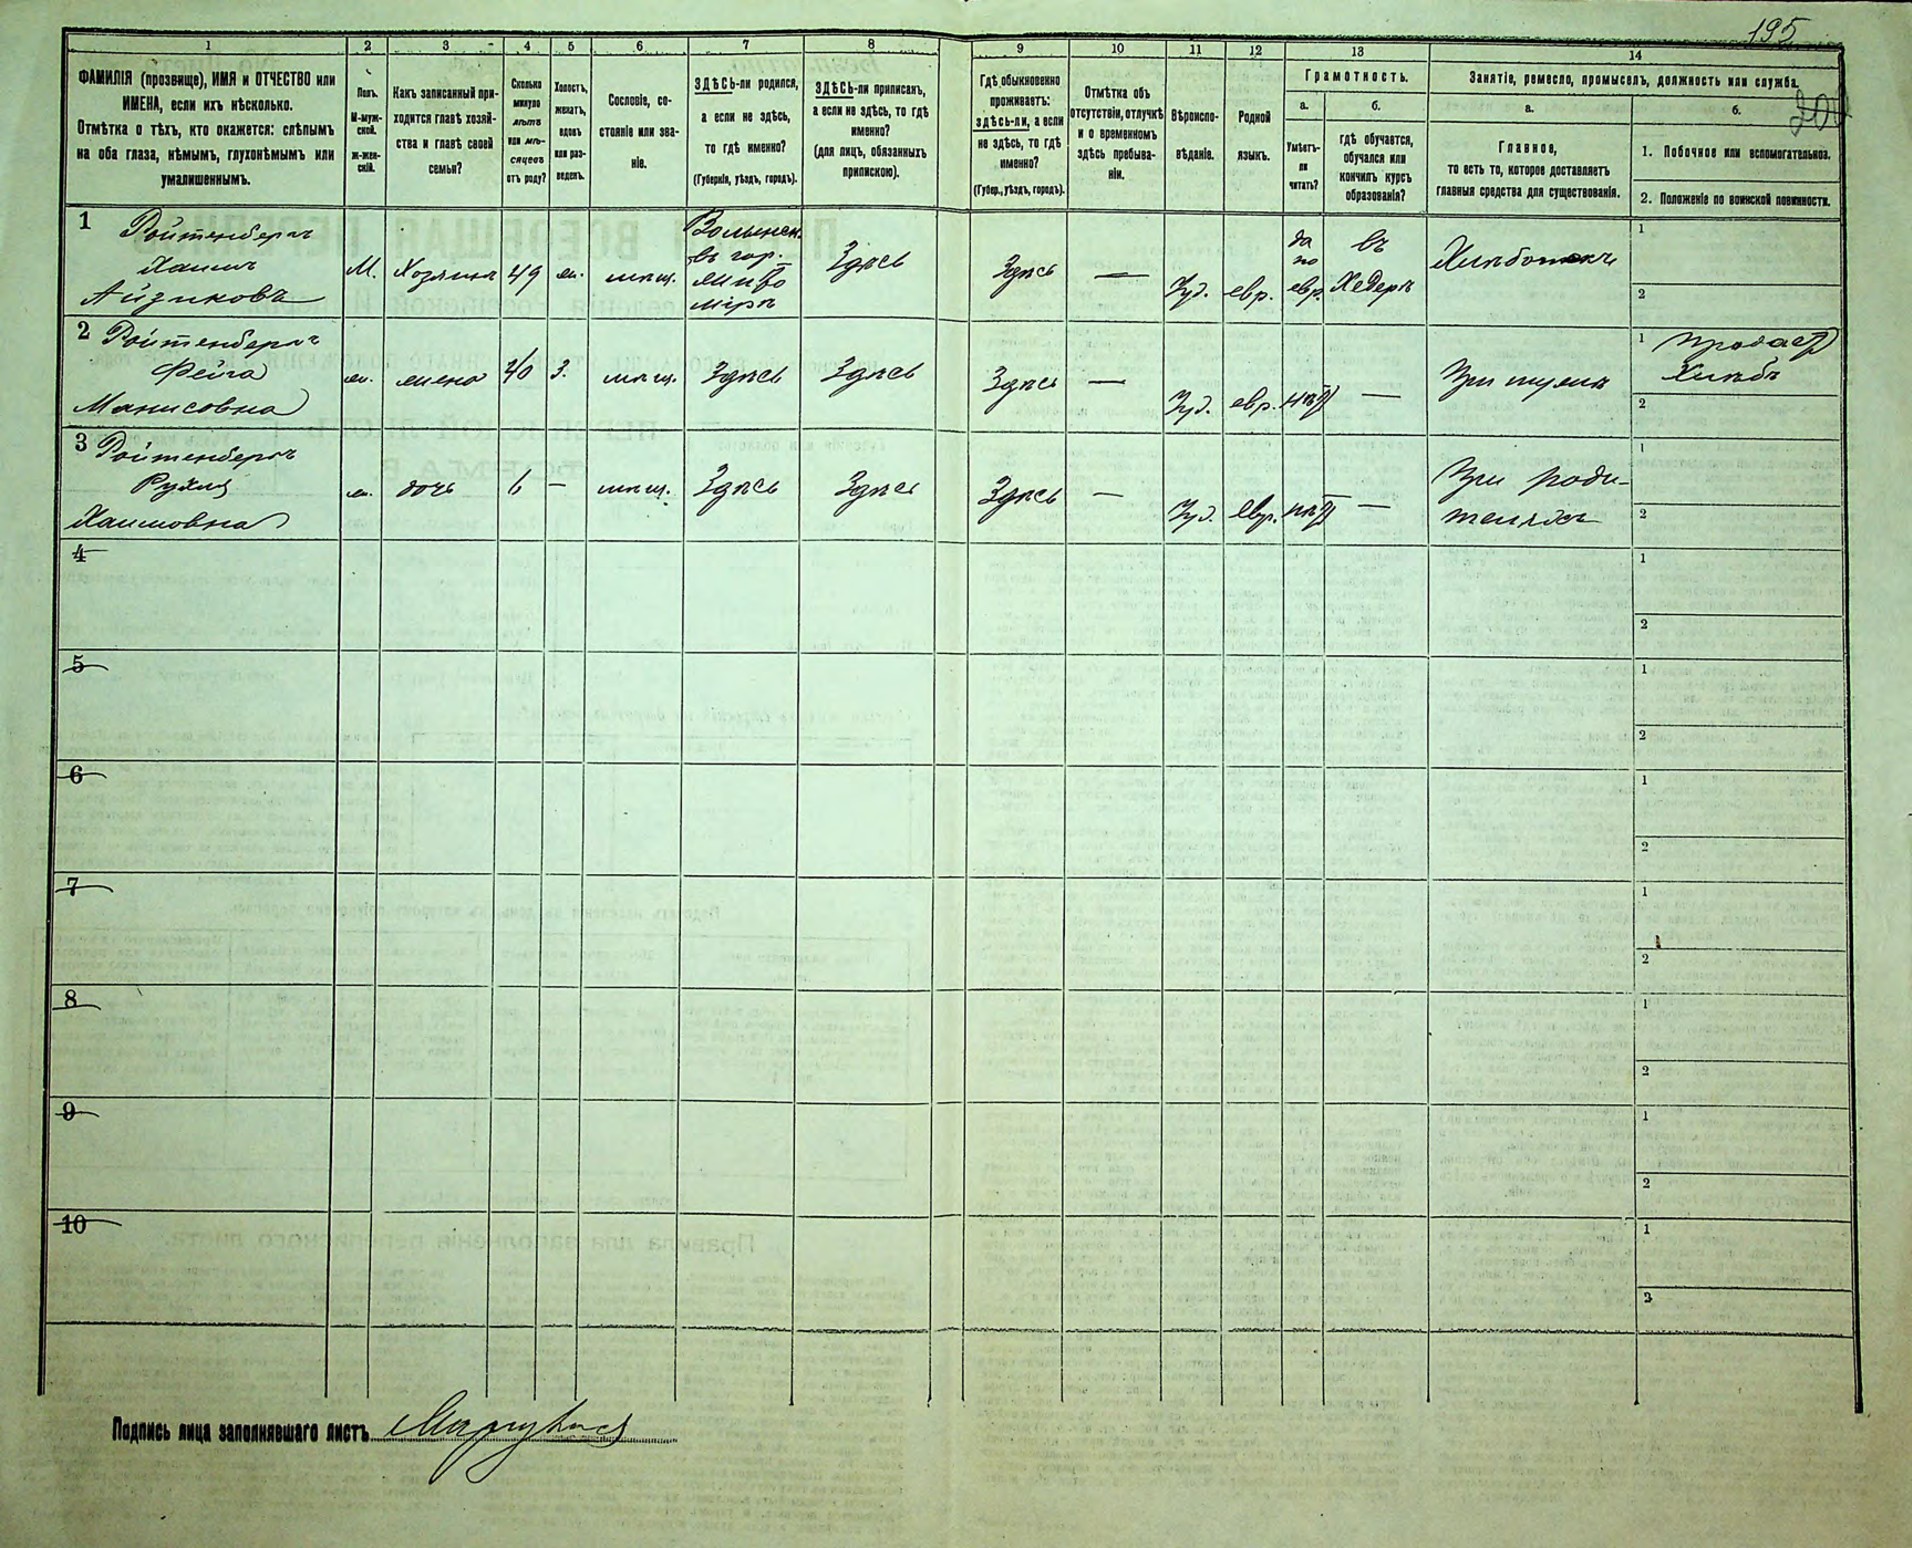 195
204
1 2 3 4 5 6 7 8 9 10 11 12 13 14
ФАМИЛІЯ (прозвище), ИМЯ и ОТЧЕСТВО или
ИМЕНА, если ихъ нѣсколько.
Отмѣтка о тѣхъ, кто окажется: слѣпымъ
на оба глаза, нѣмымъ, глухонѣмымъ или
умалишеннымъ.
Полъ.
М-муж-
ской.
ж-жен-
скій.
Какъ записанный при-
ходится главѣ хозяй-
ства и главѣ своей
семьи?
Сколько
минуло
лѣтъ
или мѣ-
сяцевъ
отъ роду?
Холостъ,
женатъ,
вдовъ
или раз-
веденъ.
Сословіе, со-
стояніе или зва-
ніе.
ЗДѢСЬ-ли родился,
а если не здѣсь,
то гдѣ именно?
(Губернія, уѣздъ, городъ).
ЗДѢСЬ-ли приписанъ,
а если не здѣсь, то гдѣ
именно?
(для лицъ, обязанныхъ
припискою).
Гдѣ обыкновенно
проживаетъ:
здѣсь-ли, а если
не здѣсь, то гдѣ
именно?
(Губер., уѣздъ, городъ).
Отмѣтка объ
отсутствіи, отлучкѣ
и о временномъ
здѣсь пребыва-
ніи.
Вѣроиспо-
вѣданіе.
Родной
языкъ.
Грамотность.
а.
Умѣетъ-
ли
читать?
б.
гдѣ обучается,
обучался или
кончилъ курсъ
образованія?
Занятіе, ремесло, промыселъ, должность или служба.
а.
Главное,
то есть то, которое доставляетъ
главныя средства для существованія.
б.
1. Побочное или вспомогательное.
2. Положеніе по воинской повинности.
1 Ройтенбергъ
Хаимъ
Айзиковъ
М.
Хозяинъ
49
ж.
мѣщ.
Волынск.
въ гор.
Здѣсь
Здѣсь
—
Іуд.
евр.
да
по
евр.
въ
Хедерѣ
Хлѣбопекъ
1
2
2 Ройтенбергъ
Фейга
Манисовна
ж.
жена
40
З.
мѣщ.
Здѣсь
Здѣсь
Здѣсь
—
Іуд.
евр.
нѣтъ
—
При мужѣ
1 продаетъ
Хлѣбъ
2
3 Ройтенбергъ
Рухля
Хаимовна
ж.
дочь
6
—
мѣщ.
Здѣсь
Здѣсь
Здѣсь
—
Іуд.
евр.
нѣтъ
—
При роди-
теляхъ
1
2
4
1
2
5
1
2
6
1
2
7
1
2
8
1
2
9
1
2
10
1
2
Подпись лица заполнявшаго листъ